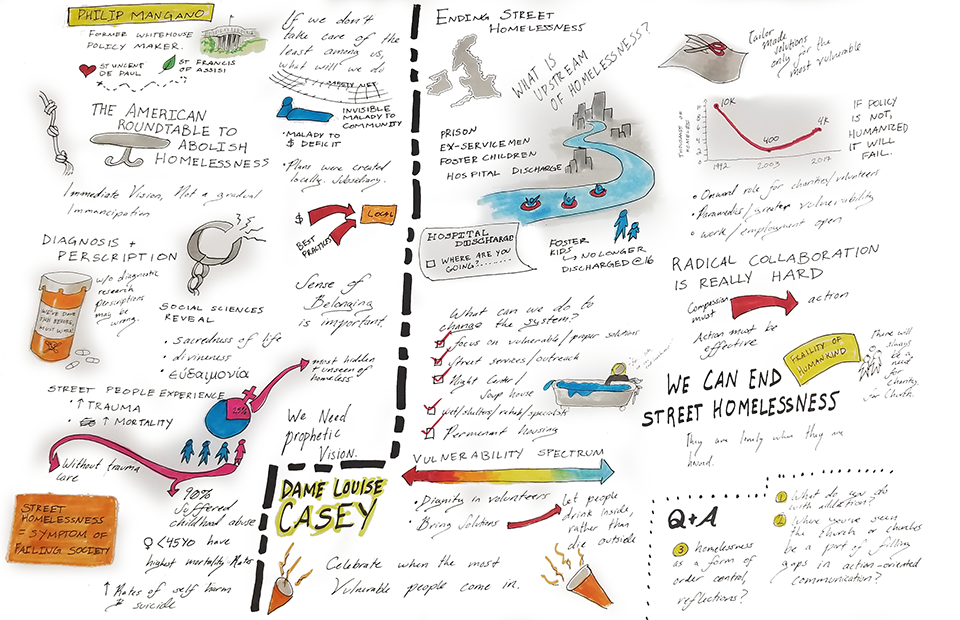 PHILIP MANGANO
FORMER WHITEHOUSE
POLICY MAKER.
ST VINCENT
DE PAUL
ST FRANCIS
OF ASSISI
THE AMERICAN
ROUNDTABLE TO
ABOLISH
HOMELESSNESS
Immediate Vision, Not a gradual
Immancipation
DIAGNOSIS +
PERSCRIPTION
w/o diagnostic
research
perscriptions
may be
wrong.
WE'VE DONE
THIS BEFORE,
MUST WORK!
SOCIAL SCIENCES
REVEAL
• sacredness of life
• divineness
• εὐδαιμονία
STREET PEOPLE EXPERIENCE
• ↑ TRAUMA
• ↑ MORTALITY
25%
most hidden
+ unseen of
homeless
Without trauma
care
90%
suffered
childhood abuse
♀ <45YO have
highest mortality Rates
↑ Rates of self harm
+ suicide
STREET
HOMELESSNESS
= SYMPTOM OF
FAILING SOCIETY
If we don't
take care of the
least among us,
what will we do
SAFETY NET
INVISIBLE
MALADY TO
COMMUNITY
• MALADY TO
$ DEFICIT
• Plans were created
locally. Jobsediary.
$
BEST
PRACTICES
LOCAL
Sense of
Belonging
is important.
We Need
prophetic
Vision.
DAME LOUISE
CASEY
ENDING STREET
HOMELESSNESS
WHAT IS
UPSTREAM
OF HOMELESSNESS?
PRISON
EX-SERVICEMEN
FOSTER CHILDREN
HOSPITAL DISCHARGE
HOSPITAL
DISCHARGE
WHERE ARE YOU
GOING?........
FOSTER
KIDS
↳ NO LONGER
DISCHARGED @ 16
What can we do to
change the system?
focus on vulnerable/proper solutions
Street services/outreach
Night Center/
Soup house
wet/shelters/rehab/specialists
Permenant housing
VULNERABILITY SPECTRUM
• Dignity in volunteers
• Bring Solutions
Let people
drink inside,
rather than
die outside
Celebrate when the most
Vulnerable people come in.
Tailor
made
solutions
only for the
most vulnerable
THOUSANDS OF
HOMELESS
10K
400
4K
1992
2003
2017
IF POLICY
IS NOT,
HUMANIZED
IT WILL
FAIL.
• Onward role for charities/volunteers
• Paramedics/greater vulnerability
• work/employment open
RADICAL COLLABORATION
IS REALLY HARD
Compassion
must
action
Action must be
effective
FRAILITY OF
HUMANKIND
There will
always
be a
need
for charity
for Church.
WE CAN END
STREET HOMELESSNESS
They are lonely when they are
housed.
Q+A
1 What do you do
with addiction?
2 Where you've seen
the church or churches
be a part of filling
gaps in action-oriented
communication?
3 homelessness
as a form of
order control,
reflections?